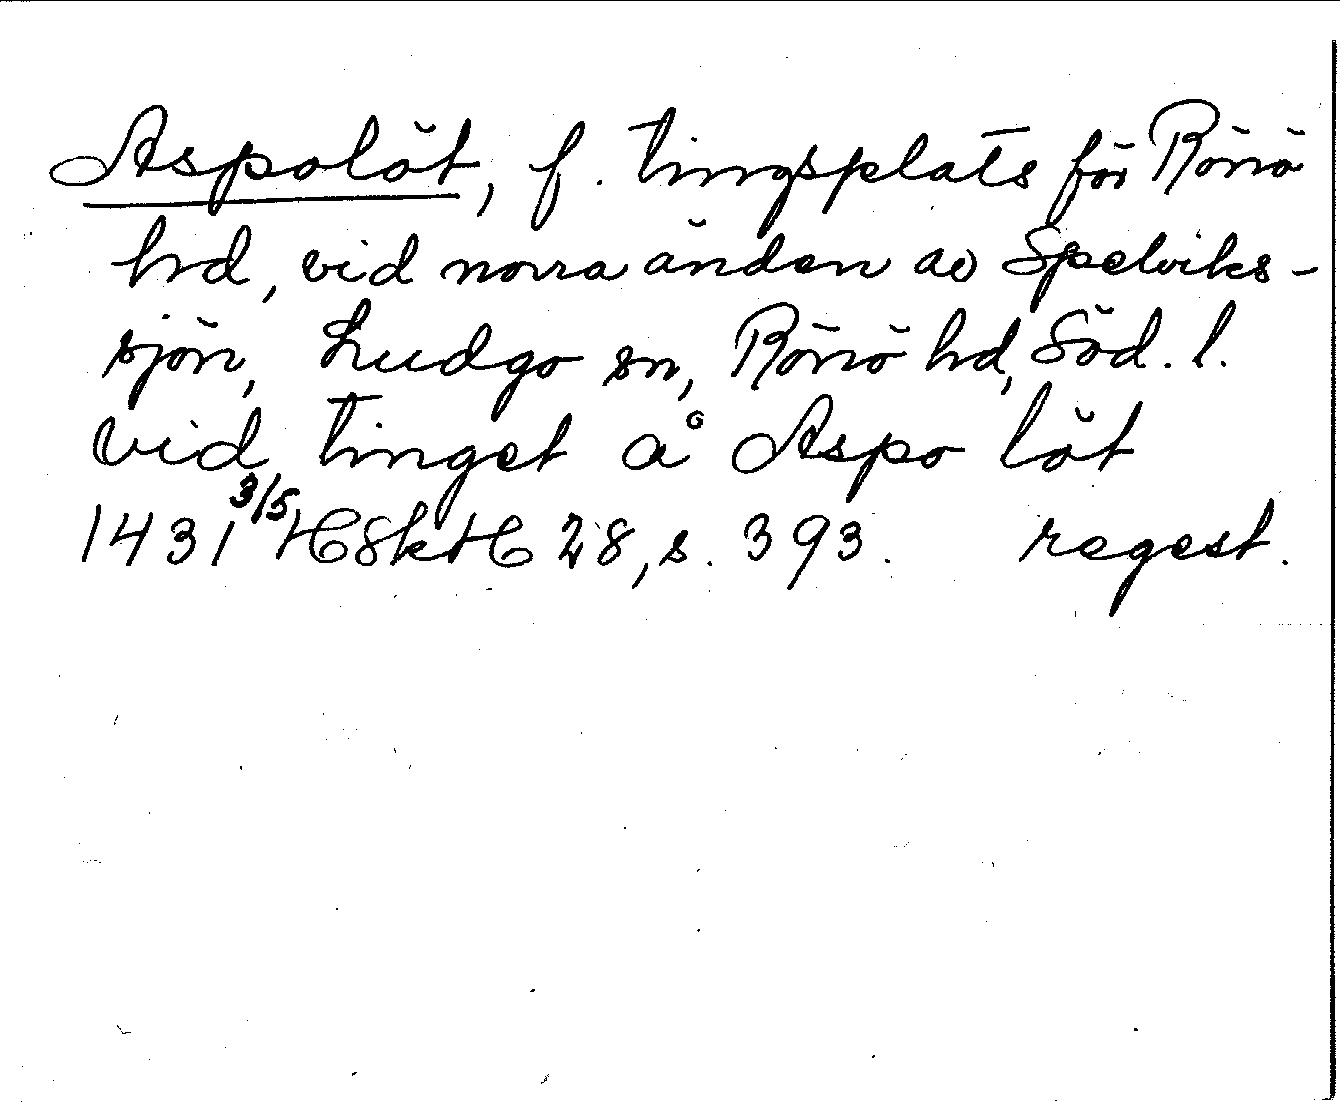 Aspolöt, f. tingsplats för Rönö
hd, vid norra änden av Spelviks-
sjön, Ludgo sn, Rönö hd, Söd. l.
vid tinget å Aspo löt
1431 3/5 HSktH 28, s. 393. regest.